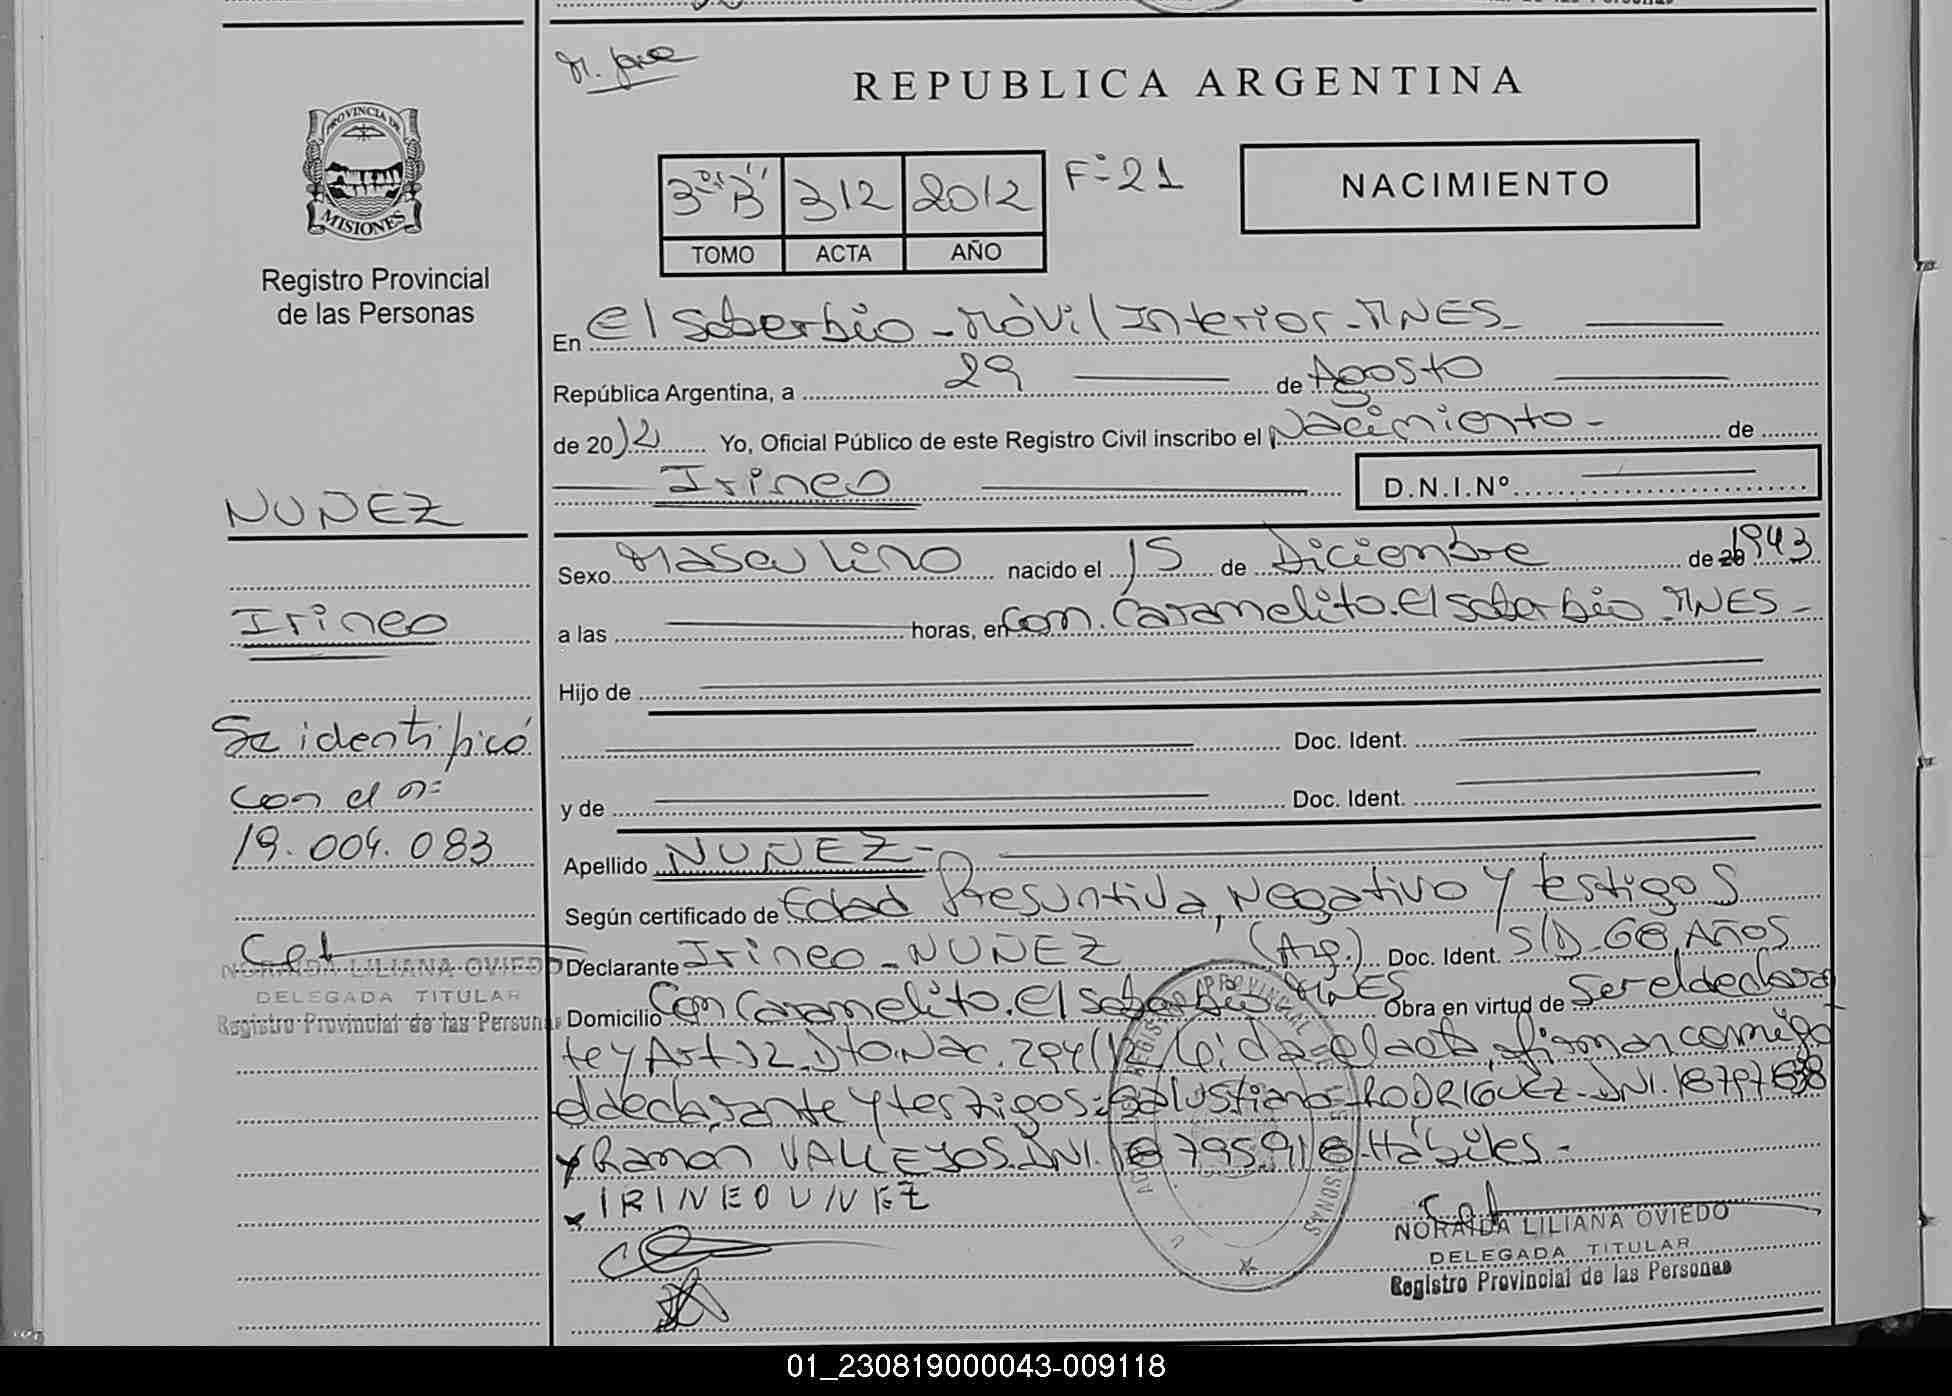 REPUBLICA ARGENTINA
PROVINCIA DE
MISIONES
Registro Provincial
de las Personas
3° "B" 312 2012 F= 21
TOMO ACTA AÑO
NACIMIENTO
En El Soberbio - Móvil Interior - MNES -
República Argentina, a 29 de Agosto
de 2012 Yo, Oficial Público de este Registro Civil inscribo el Nacimiento - de
Irineo D.N.I.Nº
NUÑEZ
Irineo
Se identificó
con el n=
19.004.083
NORAIDA LILIANA OVIEDO
DELEGADA TITULAR
Registro Provincial de las Personas
Sexo Masculino nacido el 15 de Diciembre de 20 1943
a las horas, en Com. Caramelito. El Soberbio. MNES -
Hijo de
Doc. Ident.
y de Doc. Ident.
Apellido NUÑEZ -
Según certificado de Edad Presuntiva, Negativo y testigos
Declarante Irineo - NUÑEZ (Arg.) Doc. Ident. S/D - 68 AÑOS
Domicilio Com Caramelito. El Soberbio MNES Obra en virtud de Ser el declaran
te y Art 12. Dto. Nac. 294/12 Leida el acta, firman conmigo
el declarante y testigos: Salustiano RODRIGUEZ - DNI. 18797838
y Ramón VALLEJOS. DNI. 18795918 - Hábiles -
IRINEO UNEZ
NORAIDA LILIANA OVIEDO
DELEGADA TITULAR
Registro Provincial de las Personas
01_230819000043-009118